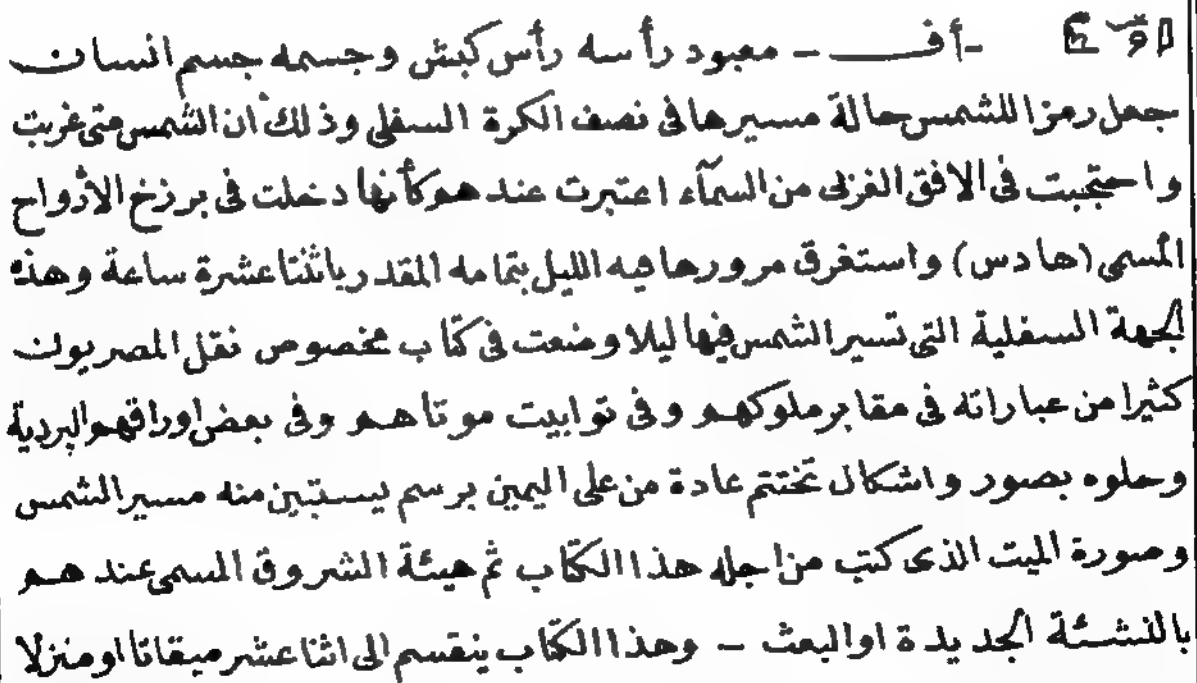 - أف - معبود رأسه رأس كبش وجسمه جسم انسان
جعل رمزا للشمس حالة مسيرها فى نصف الكرة السفلى وذلك ان الشمس متى غربت
واحتجبت فى الافق الغربى من السمآء اعتبرت عندهم كأنها دخلت فى برزخ الأرواح
المسمى (هادس) واستغرق مرورها فيه الليل بتمامه المقدر باثنتا عشرة ساعة وهذه
الجهة السفلية التى تسير الشمس فيها ليلا وضعت فى كتاب مخصوص نقل المصريون
كثيرا من عباراته فى مقابر ملوكهم وفى توابيت موتاهم وفى بعض اوراقهم البردية
وحلوه بصور واشكال تختتم عادة من على اليمين برسم يستبين منه مسير الشمس
وصورة الميت الذى كتب من اجله هذا الكتاب ثم هيئة الشروق المسمى عندهم
بالنشئة الجديدة او البعث - وهذا الكتاب ينقسم الى اثنا عشر ميقاتا او منزلا